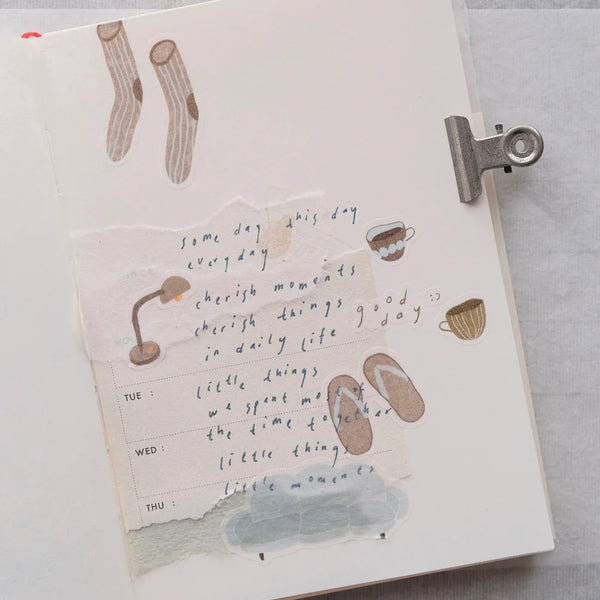 some day this day
everyday
cherish moments
cherish things
in daily life
good :)
day
TUE :
little things
we spent most of
the time together
WED :
little things
little moments
THU :